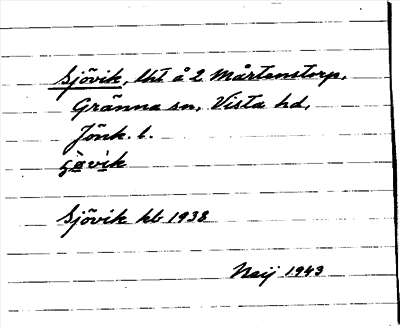 Sjövik, lht å 2 Mårtenstorp,
Gränna sn, Vista hd,
Jönk. l.
Sjövik kb 1938
Neij 1943